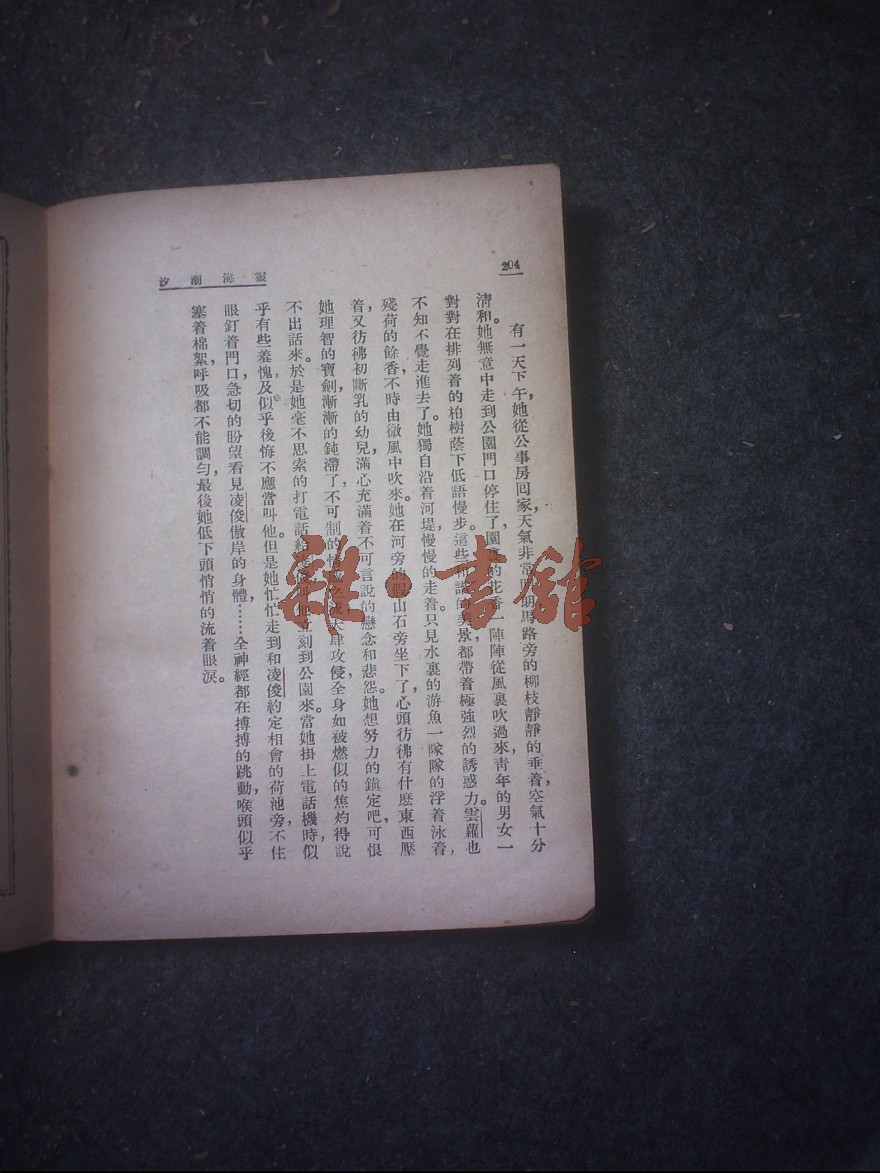 204
靈海潮汐
有一天下午，她從公事房回家，天氣非常明朗，馬路旁的柳枝靜靜的垂着，空氣十分
清和。她無意中走到公園門口停住了，園裏的花香一陣陣從風裏吹過來，靑年的男女一
對對在排列着的柏樹蔭下低語慢步。這些和諧的美景，都帶着極強烈的誘惑力。雲蘿也
不知不覺走進去了。她獨自沿着河堤，慢慢的走着。只見水裏的游魚一隊隊的浮着泳着，
殘荷的餘香，不時由微風中吹來。她在河旁的假山石旁坐下了，心頭彷彿有什麼東西壓
着，又彷彿初斷乳的幼兒，滿心充滿着不可言說的戀念和悲怨。她想努力的鎭定吧，可恨
她理智的寶劍，漸漸的鈍滯了，不可制的情大肆攻侵，全身如被燃似的焦灼得說
不出話來。於是她毫不思索的打電話給立刻到公園來。當她掛上電話機時，似
乎有些羞愧，及似乎後悔不應當叫他。但是她忙忙走到和凌俊約定相會的荷池旁，不住
眼釘着門口，急切的盼望看見凌俊傲岸的身體……全神經都在搏搏的跳動，喉頭似乎
塞着棉絮，呼吸都不能調勻，最後她低下頭悄悄的流着眼淚。
雜·書館